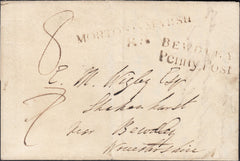 8
MORETON-IN-MARSH
BEWDLEY
Penny Post
E. M. Wigley Esqr
Shakenhurst
near Bewdley
Worcestershire